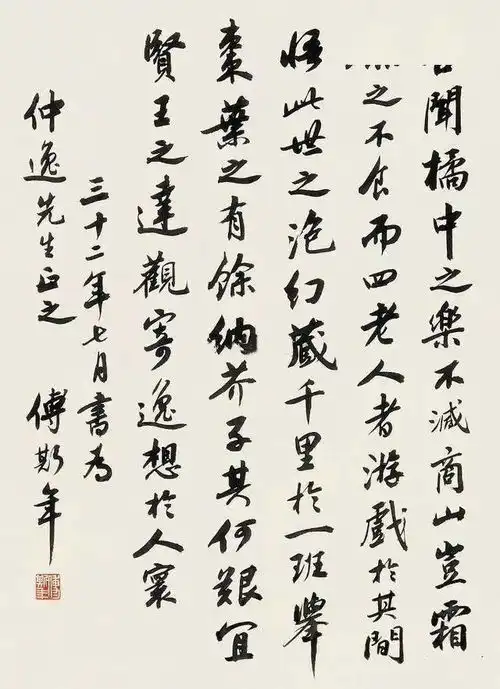 聞橘中之樂不減商山豈霜
之不食而四老人者游戲於其間
悟此世之泡幻藏千里於一班舉
棗葉之有餘納芥子其何艱宜
賢王之達觀寄逸想於人寰
三十二年七月書為
仲逸先生正之
傅斯年